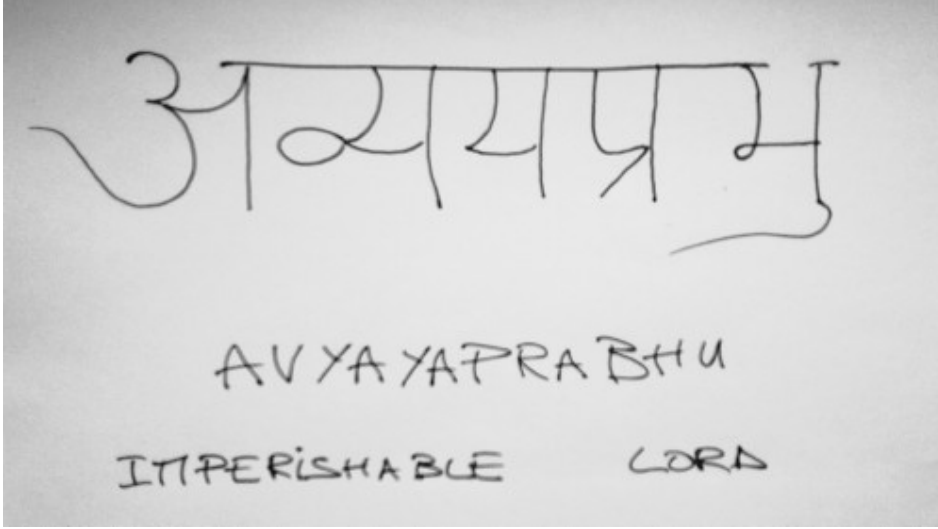 अव्ययप्रभु
AVYAYAPRABHU
IMPERISHABLE LORD